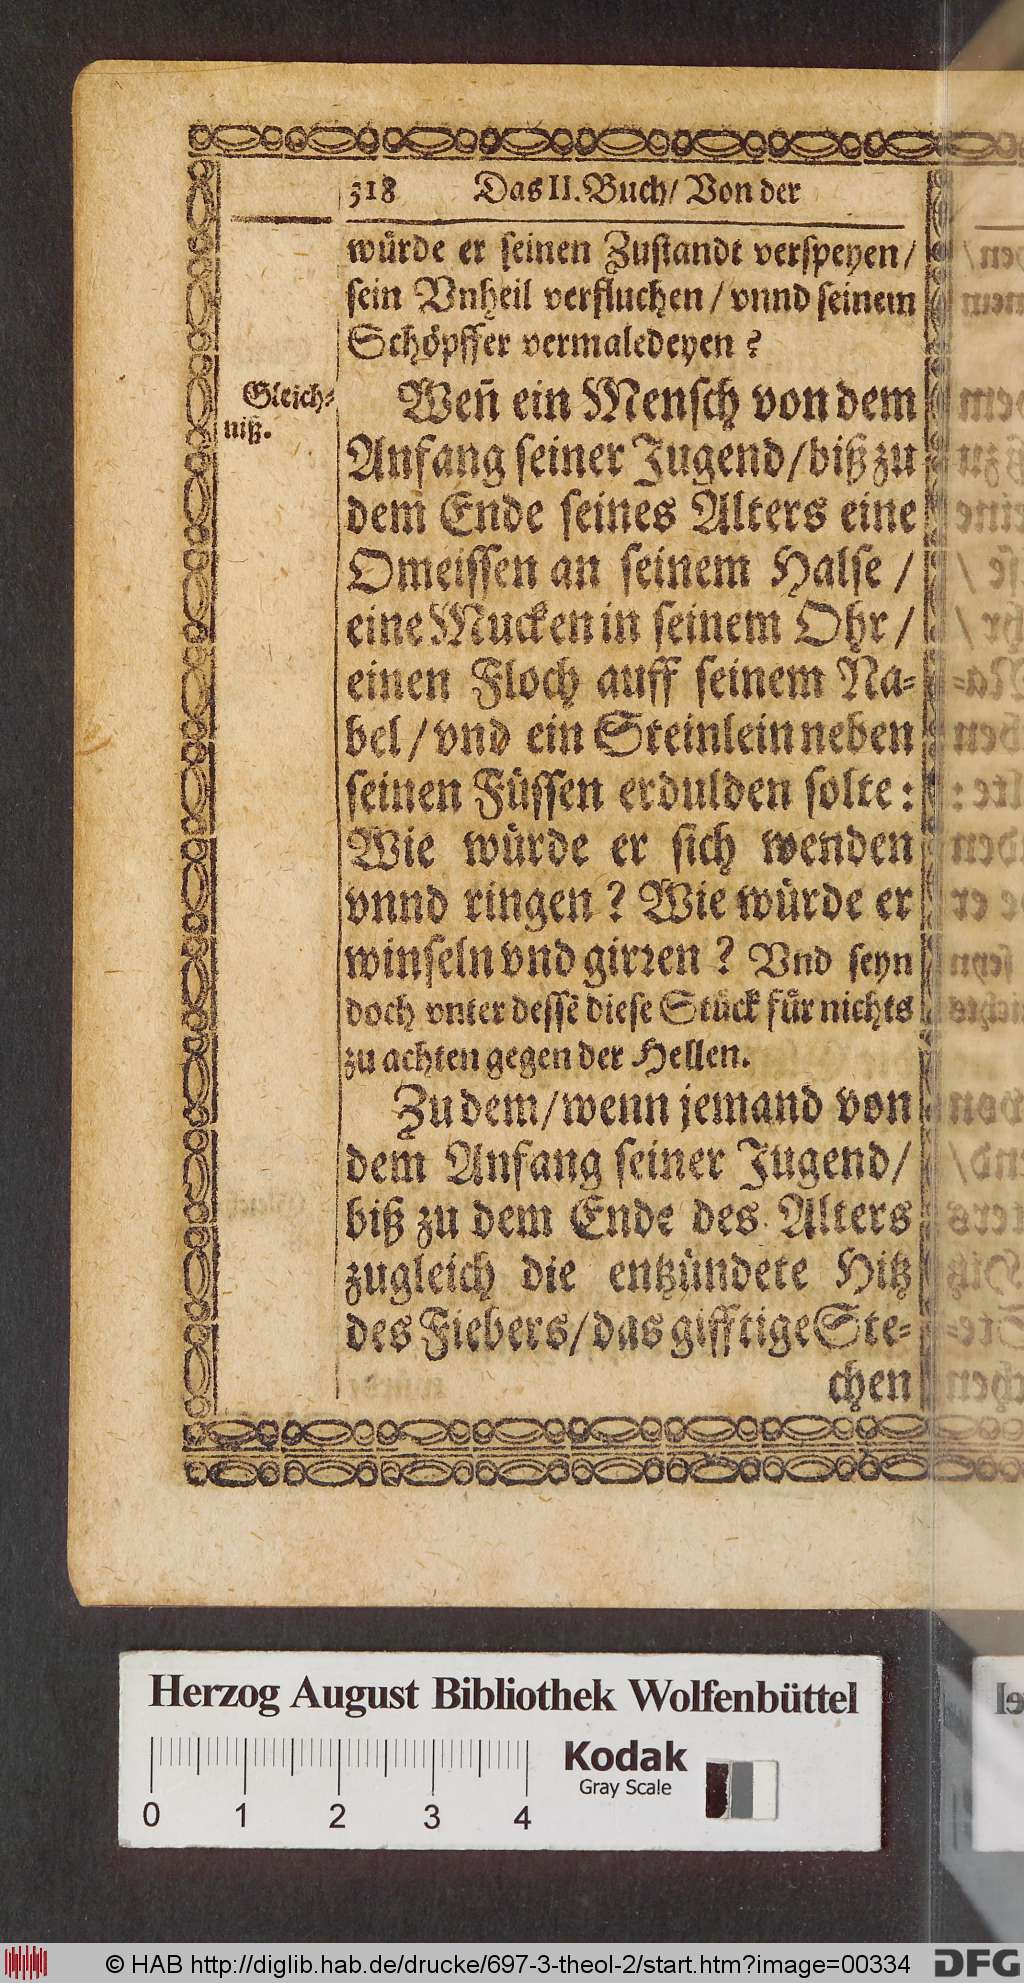 318 Das II. Buch/ Von der
würde er seinen Zustandt verspeyen/
sein Vnheil verfluchen/ vnnd seinem
Schöpffer vermaledeyen?
Gleich-
niß.
Weñ ein Mensch von dem
Anfang seiner Jugend/ biß zu
dem Ende seines Alters eine
Omeissen an seinem Halse/
eine Mucken in seinem Ohr/
einen Floch auff seinem Na-
bel/ vnd ein Steinlein neben
seinen Füssen erdulden solte:
Wie würde er sich wenden
vnnd ringen? Wie würde er
winseln vnd girren? Vnd seyn
doch vnter dessē diese Stück für nichts
zu achten gegen der Hellen.
Zu dem/ wenn jemand von
dem Anfang seiner Jugend/
biß zu dem Ende des Alters
zugleich die entzündete Hitz
des Fiebers/ das gifftige Ste-
chen
Herzog August Bibliothek Wolfenbüttel
Kodak
Gray Scale
0 1 2 3 4
© HAB http://diglib.hab.de/drucke/697-3-theol-2/start.htm?image=00334
DFG